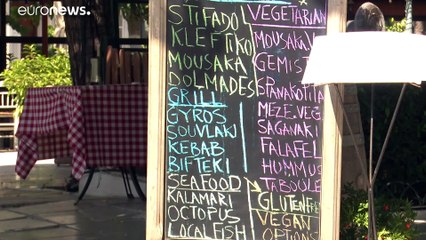 euronews.
STIFADO
KLEFTIKO
MOUSAKA
DOLMADES
GRILL
GYROS
SOUVLAKI
KEBAB
BIFTEKI
SEAFOOD
KALAMARI
OCTOPUS
LOCAL FISH
VEGETARIAN
MOUSAKA
GEMIS
SPANAKOTI
MEZE VEG
SAGANAKI
FALAFEL
HUMMUS
TABOULE
GLUTENFRE
VEGAN
OPTIONS